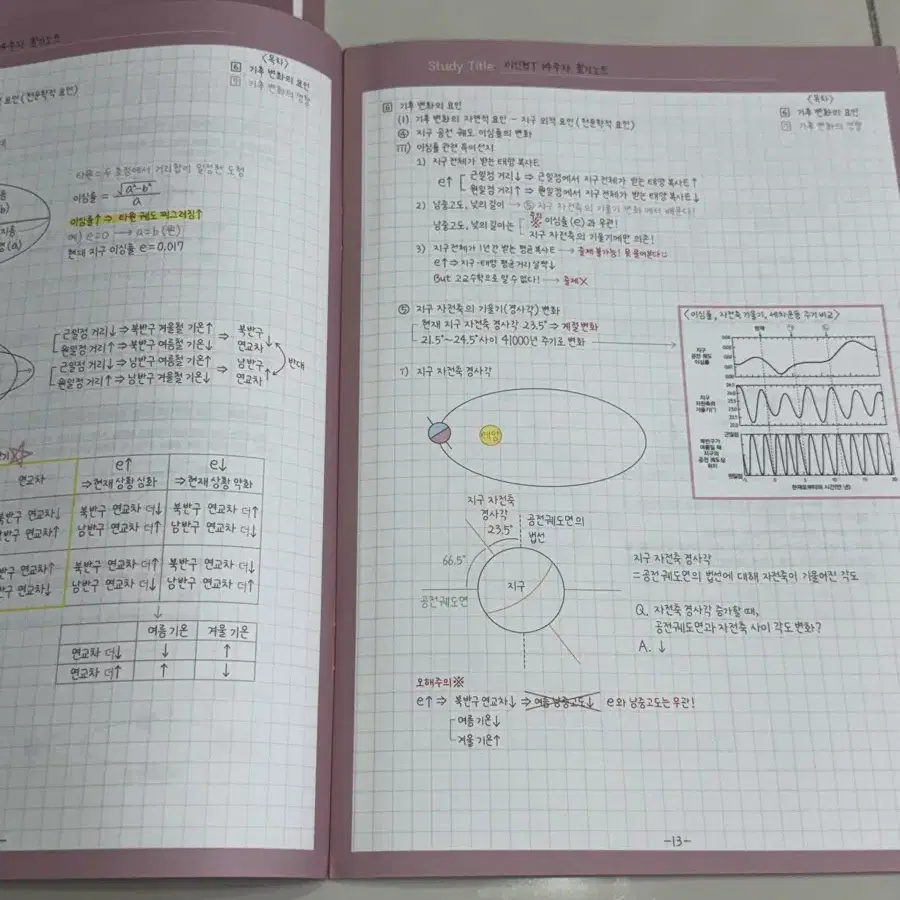 <목차>
6 기후 변화의 요인
7 기후 변화의 영향
요인(천문학적 요인)
타원 = 두 초점에서 거리합이 일정한 도형
이심률 = √a²-b² / a
이심률↑ ⇒ 타원 궤도 찌그러짐↑
예) e=0 → a=b (원)
현재 지구 이심률 e=0.017
(a)
근일점 거리↓ ⇒ 북반구 겨울철 기온↑
원일점 거리↑ ⇒ 북반구 여름철 기온↓
⇒ 북반구 연교차↓
근일점 거리↓ ⇒ 남반구 여름철 기온↑
원일점 거리↑ ⇒ 남반구 겨울철 기온↓
⇒ 남반구 연교차↑
반대
연교차
e↑ ⇒현재 상황 심화
e↓ ⇒현재 상황 약화
북반구 연교차↓
남반구 연교차↑
북반구 연교차 더↓
남반구 연교차 더↑
북반구 연교차 더↑
남반구 연교차 더↓
반구 연교차↑
반구 연교차↓
북반구 연교차 더↑
남반구 연교차 더↓
북반구 연교차 더↓
남반구 연교차 더↑
↓
여름 기온 겨울 기온
연교차 더↓ ↓ ↑
연교차 더↑ ↑ ↓
Study Title
14주차 필기노트
<목차>
6 기후 변화의 요인
7 기후 변화의 영향
6 기후 변화의 요인
(1). 기후 변화의 자연적 요인 - 지구 외적 요인(천문학적 요인)
④ 지구 공전 궤도 이심률의 변화
ⅲ) 이심률 관련 특이한지
1) 지구 전체가 받는 태양 복사E
e↑ 근일점 거리↓ ⇒ 근일점에서 지구 전체가 받는 태양 복사E↑
원일점 거리↑ ⇒ 원일점에서 지구 전체가 받는 태양 복사E↓
2) 남중고도, 낮의 길이 → ⑤ 지구 자전축의 기울기 변화 에서 배운다!
남중고도, 낮의 길이는 ※ 이심률(e)과 무관!
지구 자전축의 기울기에만 의존!
3) 지구 전체가 1년간 받는 평균 복사E → 출제 불가능! 못 물어본다
e↑ ⇒ 지구-태양 평균 거리 살짝↓
But 고교수학으로 알 수 없다! → 출제X
⑤ 지구 자전축의 기울기(경사각) 변화
현재 지구 자전축 경사각 23.5° ⇒ 계절 변화
21.5°~24.5° 사이 41000년 주기로 변화
<이심률, 자전축 기울기, 세차운동 주기 비교>
현재
지구
공전 궤도
이심률
지구
자전축의
기울기(°)
근일점
북반구가
여름일 때
지구의
공전 궤도상
위치
원일점
현재로부터의 시간(만 년)
ⅰ) 지구 자전축 경사각
태양
지구 자전축
경사각
23.5°
공전궤도면의
법선
66.5°
지구
공전궤도면
지구 자전축 경사각
=공전궤도면의 법선에 대해 자전축이 기울어진 각도
Q. 자전축 경사각 증가할 때,
공전궤도면과 자전축 사이 각도 변화?
A. ↓
오해주의※
e↑ ⇒ 북반구 연교차↓ ⇒ 여름 남중고도↓ e와 남중고도는 무관!
여름 기온↓
겨울 기온↑
-13-